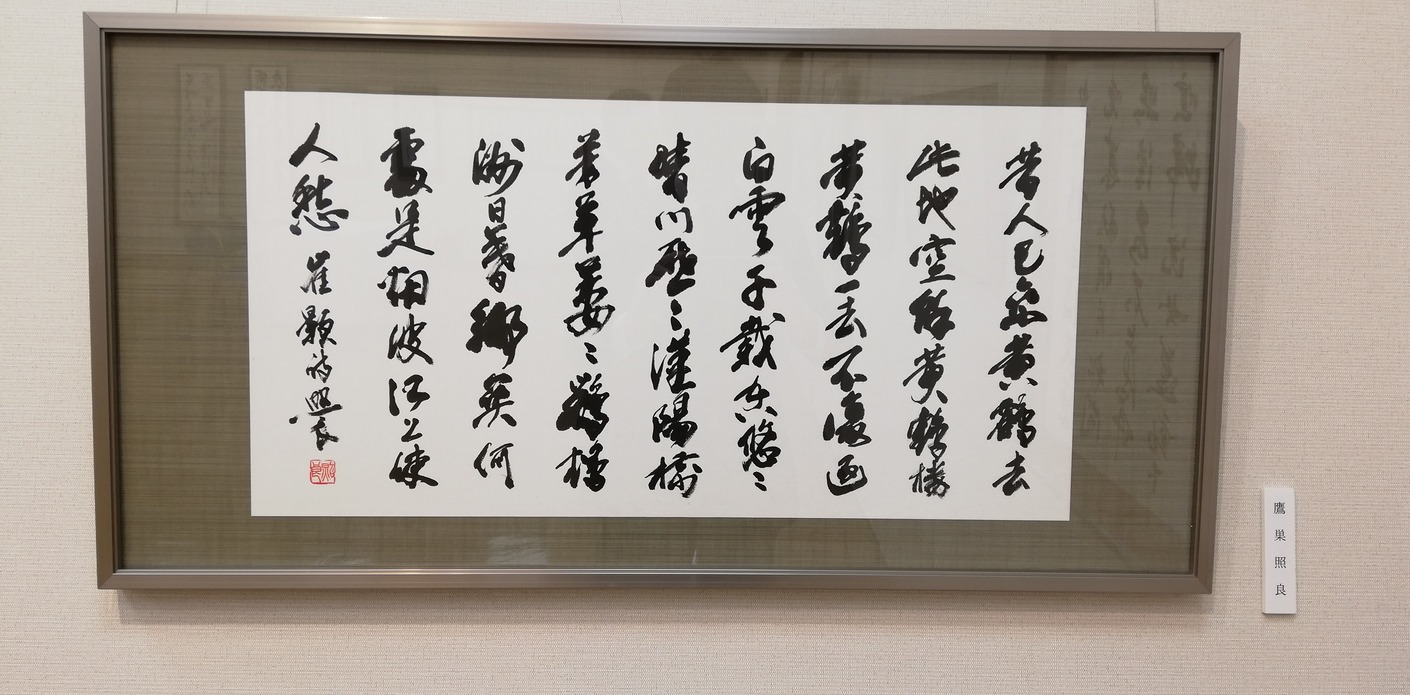 昔人已乘黄鶴去
此地空餘黄鶴楼
黄鶴一去不復返
白雲千載空悠々
晴川歴々漢陽樹
芳草萋々鸚鵡
洲日暮郷関何
處是烟波江上使
人愁 崔顥詩 照良
鷹巣照良